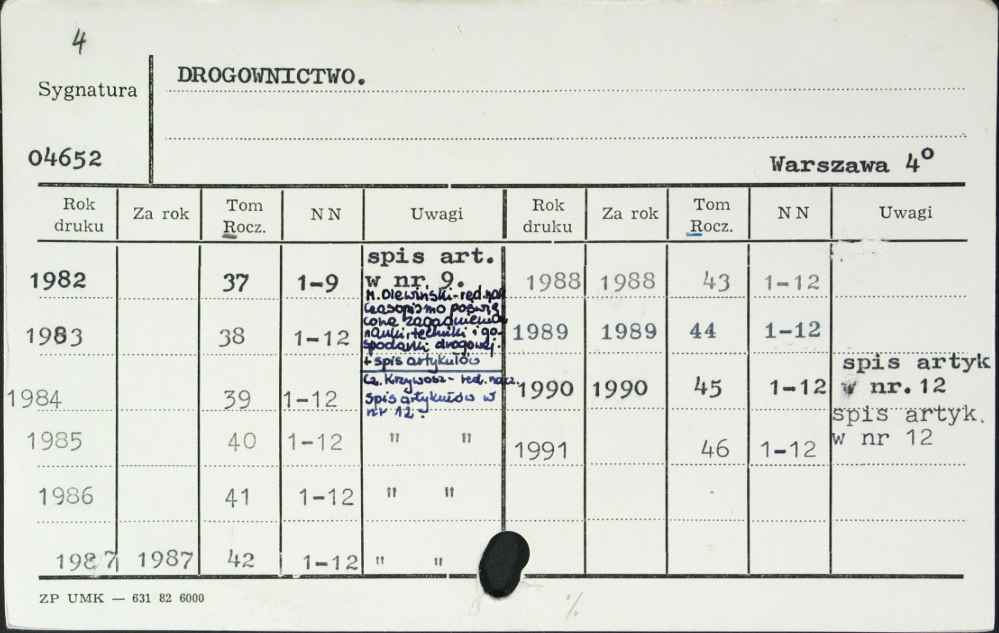 4
Sygnatura
DROGOWNICTWO.
04652
Warszawa 4º
Rok druku Za rok Tom Rocz. NN Uwagi Rok druku Za rok Tom Rocz. NN Uwagi
1982 37 1-9 spis art. w nr. 9.
M. Olewiński - red. nacz.
Czasopismo poświę
cone zagadnieniom
nauki, techniki i go-
spodarki drogowej.
+ spis artykułów
1983 38 1-12
1984 39 1-12 Cz. Krzywosz - red. nacz.
spis artykułów w
nr 12.
1985 40 1-12 " "
1986 41 1-12 " "
1987 1987 42 1-12 " "
1988 1988 43 1-12
1989 1989 44 1-12
1990 1990 45 1-12 spis artyk
w nr. 12
1991 46 1-12 spis artyk.
w nr 12
ZP UMK — 631 82 6000